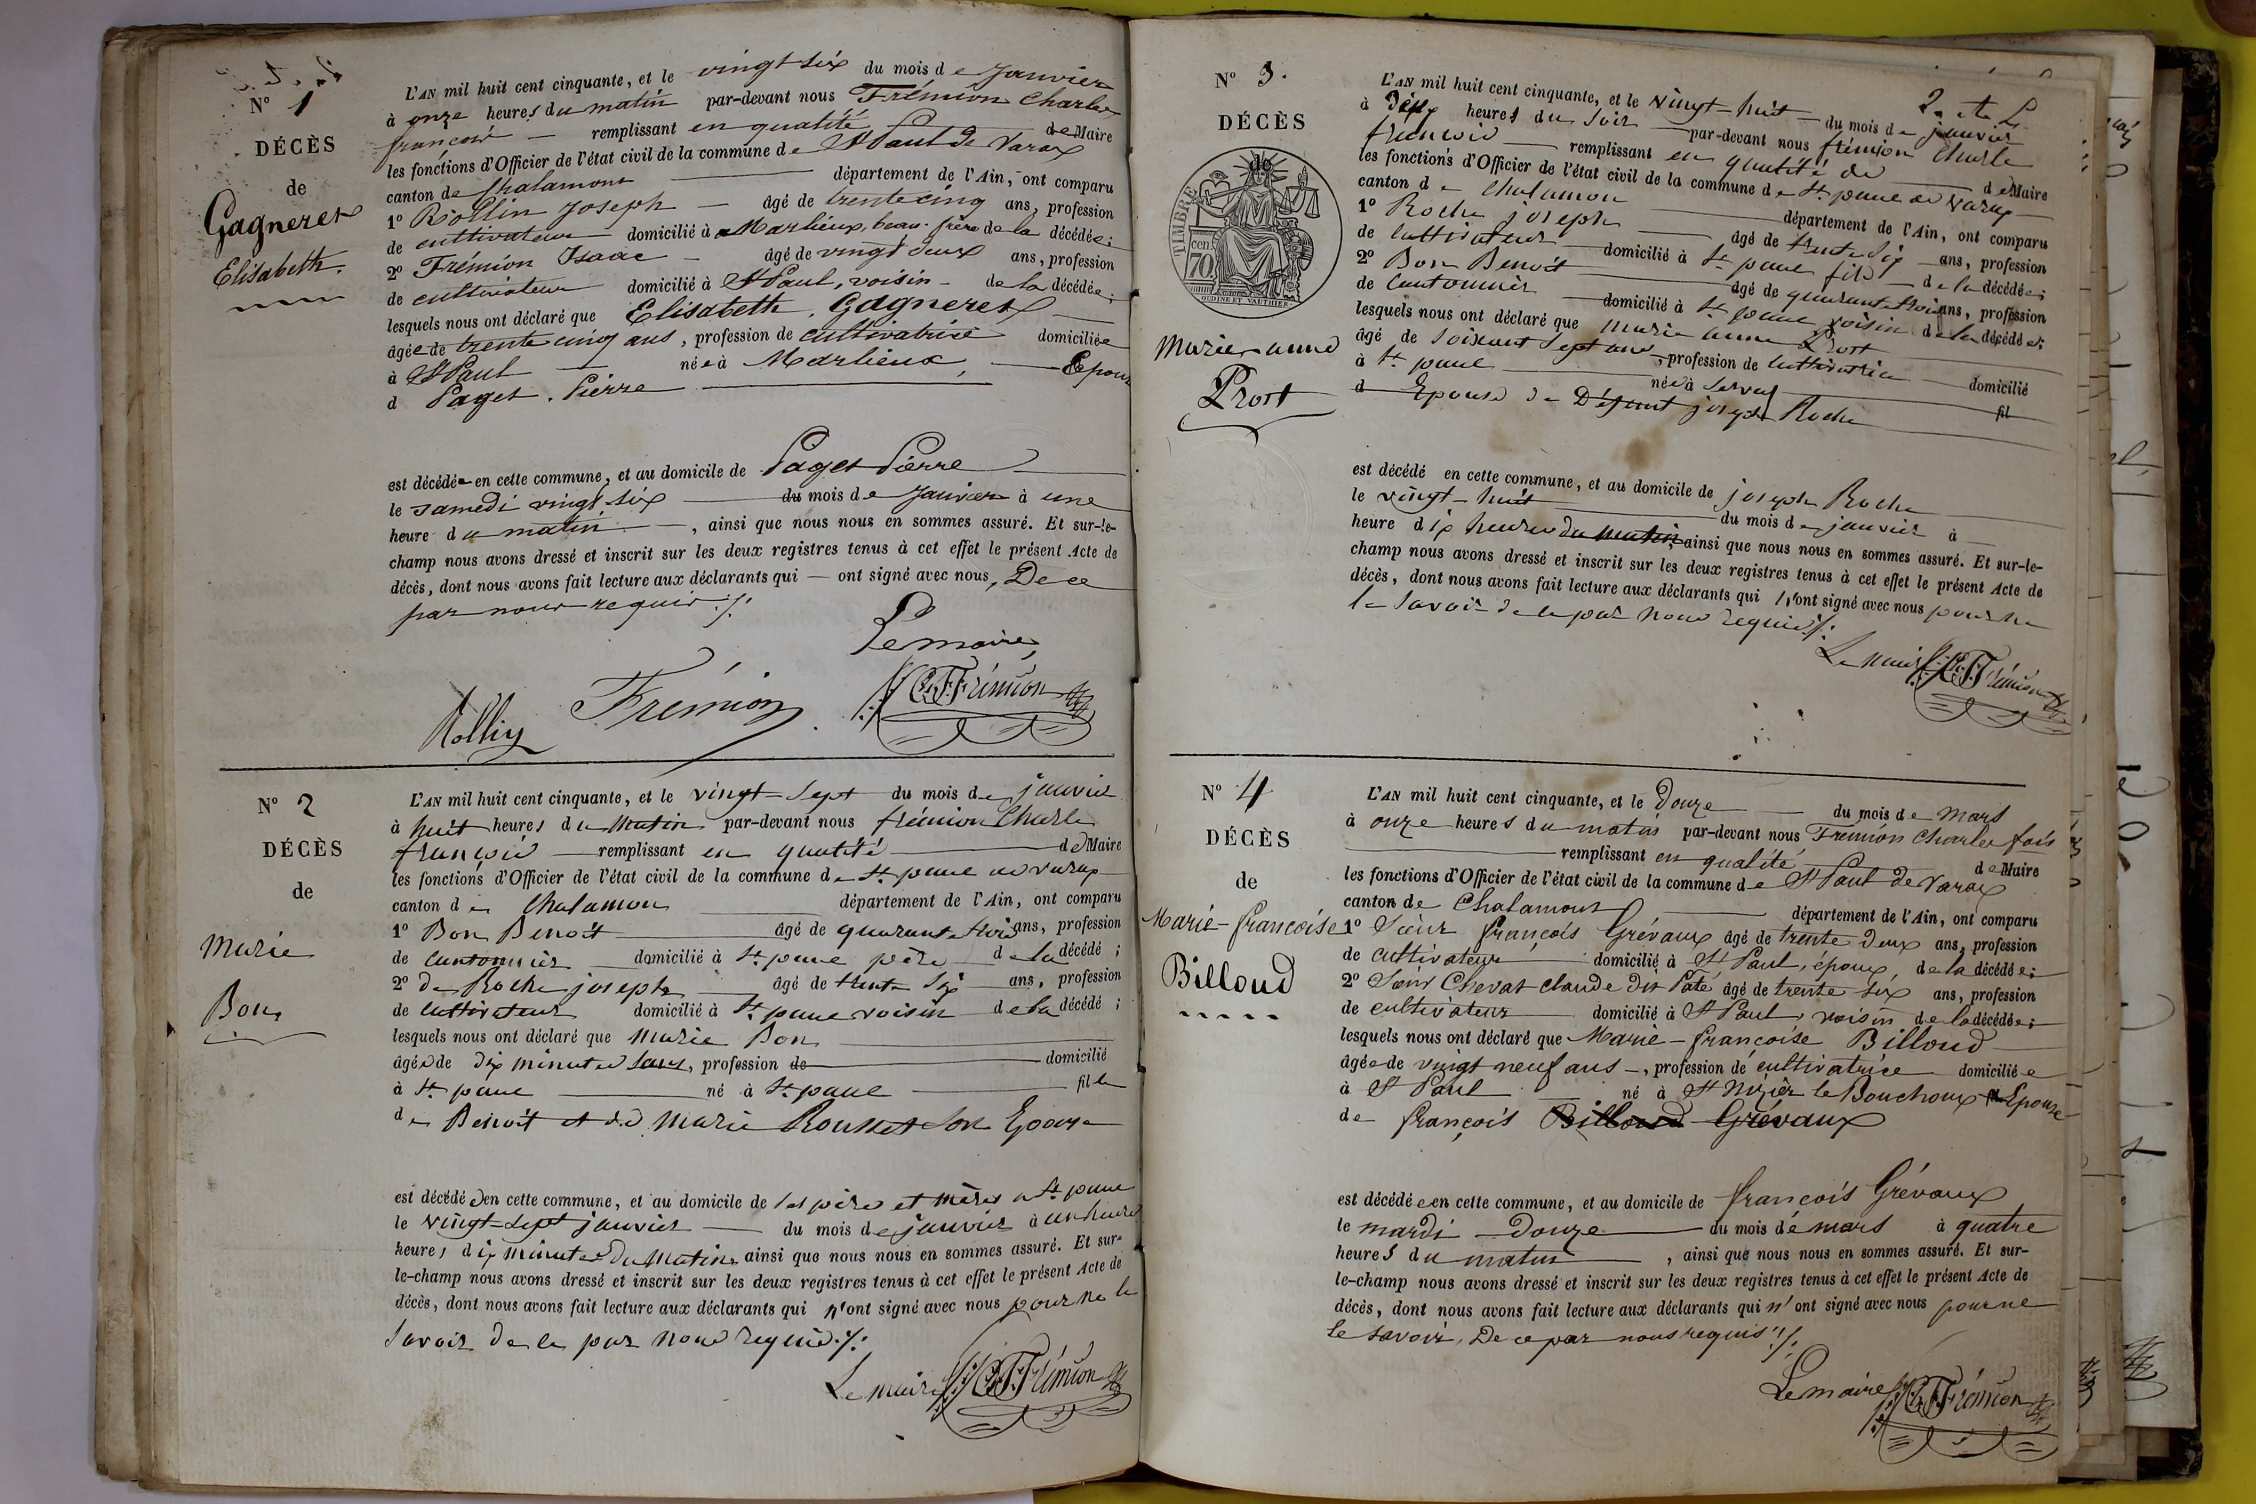 N° 1
DÉCÈS
de
Gagneret
Elisabeth.
L'AN mil huit cent cinquante, et le vingt six du mois de Janvier
à onze heures du matin par-devant nous Frémion Charles
françois remplissant en qualité de Maire
les fonctions d'Officier de l'état civil de la commune de St Paul de Varax
canton de Chalamont département de l'Ain, ont comparu
1° Rollin Joseph âgé de trente cinq ans, profession
de cultivateur domicilié à Marlieux, beau-frère de la décédée;
2° Frémion Isaac âgé de vingt deux ans, profession
de cultivateur domicilié à St Paul, voisin de la décédée;
lesquels nous ont déclaré que Elisabeth Gagneret
âgée de trente cinq ans, profession de cultivatrice domiciliée
à St Paul née à Marlieux, Epouse
d Paget Pierre
est décédée en cette commune, et au domicile de Paget Pierre
le samedi vingt six du mois de Janvier à une
heure du matin, ainsi que nous nous en sommes assuré. Et sur-le-
champ nous avons dressé et inscrit sur les deux registres tenus à cet effet le présent Acte de
décès, dont nous avons fait lecture aux déclarants qui — ont signé avec nous, De ce
par nous requis ./.
Le maire,
Rollin Frémion C. F. Frémion
N° 2
DÉCÈS
de
Marie
Bon
L'AN mil huit cent cinquante, et le vingt-sept du mois de janvier
à huit heures du matin par-devant nous frémion Charle
françois remplissant en qualité de Maire
les fonctions d'Officier de l'état civil de la commune de St paul de varax
canton de Chalamon département de l'Ain, ont comparu
1° Bon Benoit âgé de quarante trois ans, profession
de cantonnier domicilié à St paul père de la décédé;
2° de Roche joseph âgé de trente six ans, profession
de cultivateur domicilié à St paul voisin de la décédé;
lesquels nous ont déclaré que Marie Bon
âgée de dix minutes, profession de domicilié
à St paul né à St paul fille
de Benoit et de Marie Rousset son Epouse
est décédé en cette commune, et au domicile de ses père et mère a St paul
le vingt-sept janvier du mois de janvier à une heure
heures dix minutes du matin, ainsi que nous nous en sommes assuré. Et sur-
le-champ nous avons dressé et inscrit sur les deux registres tenus à cet effet le présent Acte de
décès, dont nous avons fait lecture aux déclarants qui n'ont signé avec nous pour ne le
savoir de ce par nous requis ./.
Le maire C. F. Frémion
N° 3.
DÉCÈS
de
TIMBRE
70 cen
OUDINE ET VAUTHIER
Marie anne
Prost
L'AN mil huit cent cinquante, et le vingt-huit du mois de janvier
à deux heures du soir par-devant nous frémion Charle
françois remplissant en qualité de de Maire
les fonctions d'Officier de l'état civil de la commune de St paul de varax
canton de Chalamon département de l'Ain, ont comparu
1° Roche joseph âgé de trente six ans, profession
de cultivateur domicilié à St paul fils de la décédée;
2° Bon Benoit âgé de quarante trois ans, profession
de cantonnier domicilié à St paul voisin de la décédée;
lesquels nous ont déclaré que Marie anne Prost
âgé de soixant sept ans, profession de cultivatrice domicilié
à St paul née à Servas fil
d Epouse de Défunt joseph Roche
est décédé en cette commune, et au domicile de joseph Roche
le vingt-huit du mois de janvier à
heure dix heures du matin, ainsi que nous nous en sommes assuré. Et sur-le-
champ nous avons dressé et inscrit sur les deux registres tenus à cet effet le présent Acte de
décès, dont nous avons fait lecture aux déclarants qui n'ont signé avec nous pour ne
le savoir de ce par nous requis ./.
Le maire C. F. Frémion
N° 4
DÉCÈS
de
Marie-françoise
Billoud
L'AN mil huit cent cinquante, et le douze du mois de mars
à onze heures du matin par-devant nous Frémion Charles fois
remplissant en qualité de Maire
les fonctions d'Officier de l'état civil de la commune de St Paul de Varax
canton de Chalamont département de l'Ain, ont comparu
1° Sieur françois Grévaux âgé de trente deux ans, profession
de cultivateur domicilié à St Paul, époux, de la décédée;
2° Sieur Chevat claude dit Paté âgé de trente six ans, profession
de cultivateur domicilié à St Paul, voisin de la décédée;
lesquels nous ont déclaré que Marie-françoise Billoud
âgée de vingt neuf ans, profession de cultivatrice domiciliée
à St Paul né à St Nizier le Bouchoux Epouse
de françois Billoud Grévaux
est décédée en cette commune, et au domicile de françois Grévaux
le mardi douze du mois de mars à quatre
heures du matin, ainsi que nous nous en sommes assuré. Et sur-
le-champ nous avons dressé et inscrit sur les deux registres tenus à cet effet le présent Acte de
décès, dont nous avons fait lecture aux déclarants qui n'ont signé avec nous pour ne
le savoir, De ce par nous requis ./.
Le maire C. F. Frémion